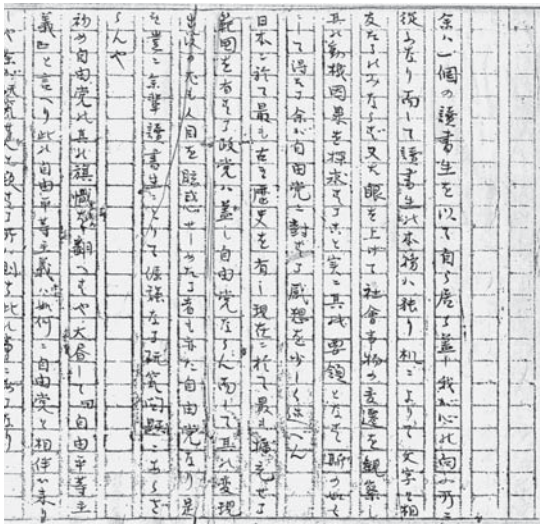 余ハ一個の讀書生を以て自ら居る蓋し我が心の向ふ所ニ
從ふなり而して讀書生の本務ハ獨り机ニよりて文字を相
友たるのみならず又大眼を上げて社會事物の変遷を観察し
其の動機因果を探求する こと実ニ其の要領となす斯の如く
して得たる余が自由党ニ對する感想を少しく述べん
日本ニ於て最も古き歴史を有し現在ニ於て最も擴充せる
範囲を有する政党ハ蓋し自由党ならん而して其の変現
出没の尤も人目を眩惑せしめたる者も亦た自由党なり是
れ豈ニ余輩讀書生ニとりて 研究問題ニあらざ
らんや
初め自由党の其の旗幟を翻へすや大呼して曰自由平等主
義 と言へり此の自由平等主義ハ如何ニ自由党と相伴ひ来り